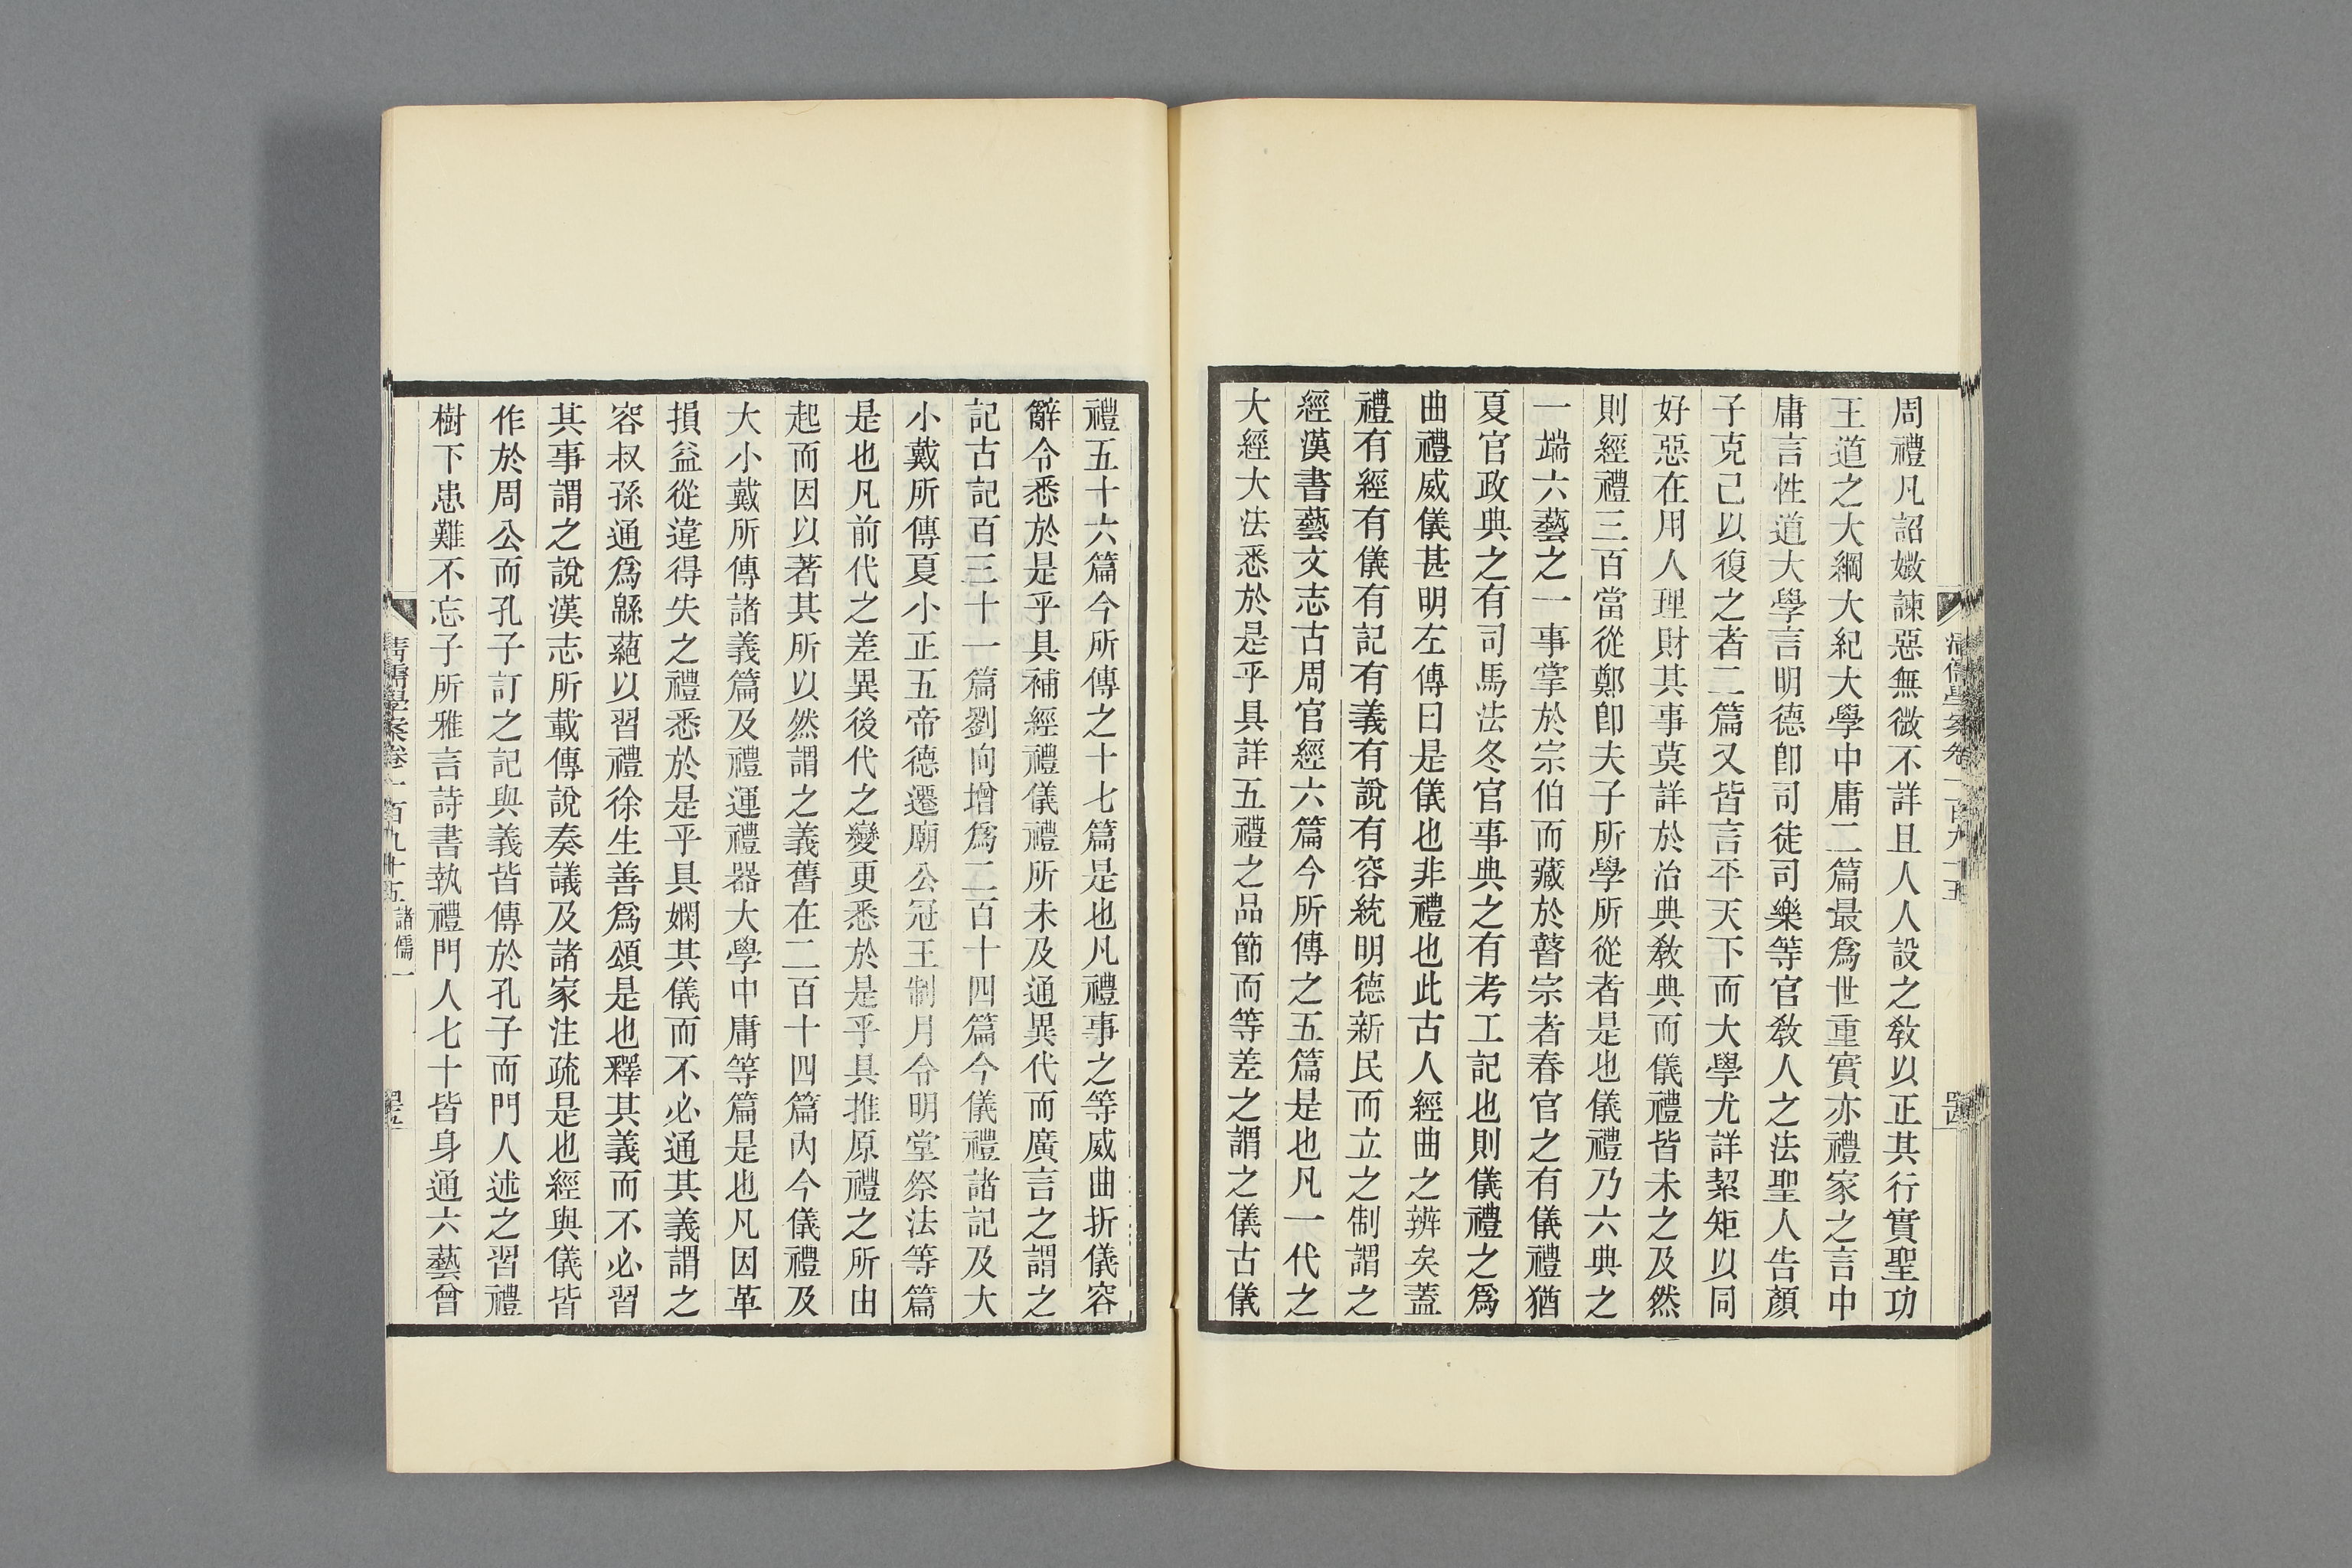 周禮凡詔媺諫惡無微不詳且人人設之敎以正其行實聖功
王道之大綱大紀大學中庸二篇最爲世重實亦禮家之言中
庸言性道大學言明德卽司徒司樂等官敎人之法聖人告顏
子克己以復之者二篇又皆言平天下而大學尤詳絜矩以同
好惡在用人理財其事莫詳於治典敎典而儀禮皆未之及然
則經禮三百當從鄭卽夫子所學所從者是也儀禮乃六典之
一端六藝之一事掌於宗伯而藏於瞽宗者春官之有儀禮猶
夏官政典之有司馬法冬官事典之有考工記也則儀禮之爲
曲禮威儀甚明左傳曰是儀也非禮也此古人經曲之辨矣蓋
禮有經有儀有記有義有說有容統明德新民而立之制謂之
經漢書藝文志古周官經六篇今所傳之五篇是也凡一代之
大經大法悉於是乎具詳五禮之品節而等差之謂之儀古儀
禮五十六篇今所傳之十七篇是也凡禮事之等威曲折儀容
辭令悉於是乎具補經禮儀禮所未及通異代而廣言之謂之
記古記百三十一篇劉向增爲二百十四篇今儀禮諸記及大
小戴所傳夏小正五帝德遷廟公冠王制月令明堂祭法等篇
是也凡前代之差異後代之變更悉於是乎具推原禮之所由
起而因以著其所以然謂之義舊在二百十四篇內今儀禮及
大小戴所傳諸義篇及禮運禮器大學中庸等篇是也凡因革
損益從違得失之禮悉於是乎具嫺其儀而不必通其義謂之
容叔孫通爲緜蕝以習禮徐生善爲頌是也釋其義而不必習
其事謂之說漢志所載傳說奏議及諸家注疏是也經與儀皆
作於周公而孔子訂之記與義皆傳於孔子而門人述之習禮
樹下患難不忘子所雅言詩書執禮門人七十皆身通六藝曾
清儒學案卷一百九十五 諸儒一